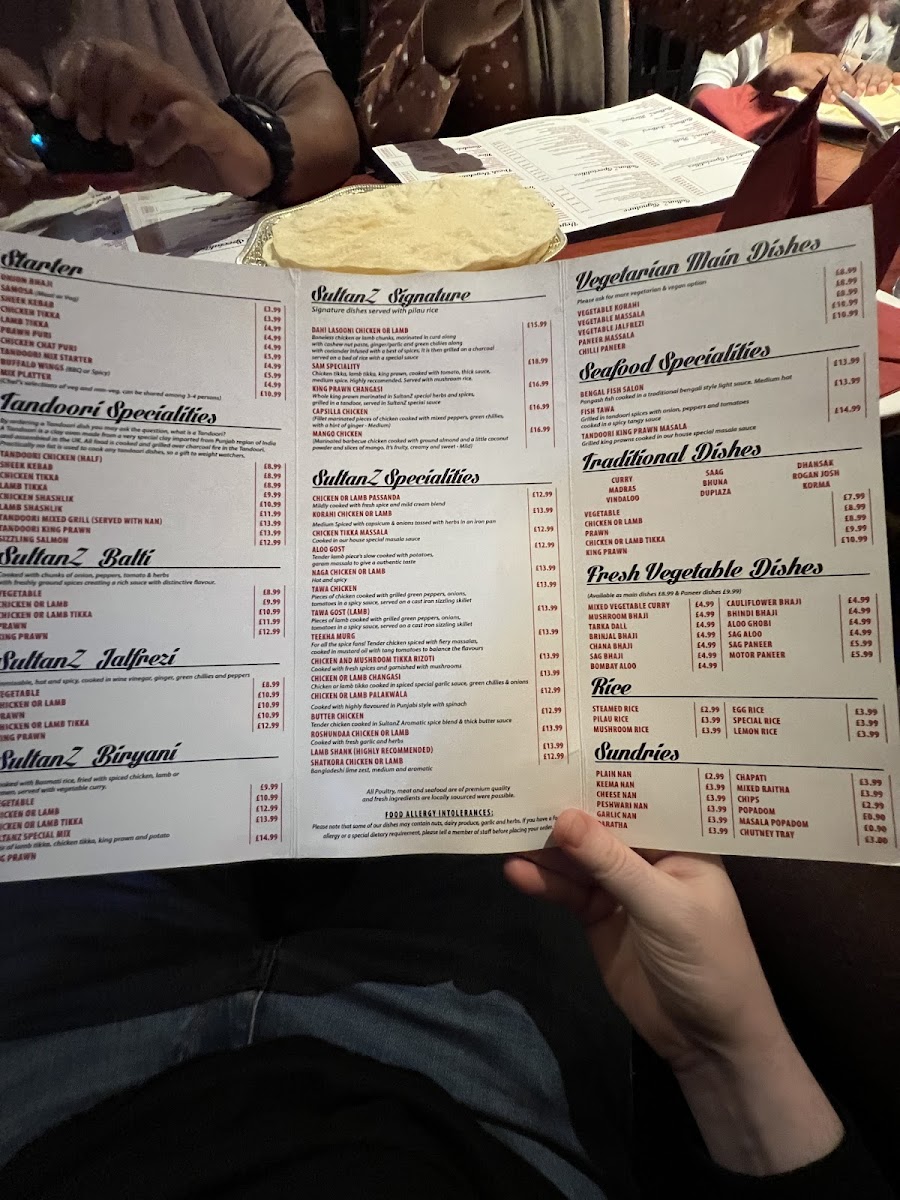 Starter
ONION BHAJI
SAMOSA (Meat or Veg) £3.99
SHEEK KEBAB £3.99
CHICKEN TIKKA £4.99
LAMB TIKKA £4.99
PRAWN PURI £4.99
CHICKEN CHAT PURI £4.99
TANDOORI MIX STARTER £5.99
BUFFALO WINGS (BBQ or Spicy) £4.99
MIX PLATTER £5.99
£4.99
(Chef's selections of veg and non-veg, can be shared among 3-4 persons) £10.99
Tandoori Specialities
By ordering a Tandoori dish you may ask the question, what is a Tandoori?
A Tandoor is a clay oven made from a very special clay imported from Punjab region of India
and assembled in the UK. All food is cooked and grilled over charcoal fire in the Tandoori.
Virtually no fat is used to cook any tandoori dishes, so a gift to weight watchers.
TANDOORI CHICKEN (HALF) £8.99
SHEEK KEBAB £8.99
CHICKEN TIKKA £8.99
LAMB TIKKA £9.99
CHICKEN SHASHLIK £10.99
LAMB SHASHLIK £11.99
TANDOORI MIXED GRILL (SERVED WITH NAN) £13.99
TANDOORI KING PRAWN £13.99
SIZZLING SALMON £12.99
SultanZ Balti
Cooked with chunks of onion, peppers, tomato & herbs
with freshly ground spices creating a rich sauce with distinctive flavour.
VEGETABLE £8.99
CHICKEN OR LAMB £9.99
CHICKEN OR LAMB TIKKA £10.99
PRAWN £11.99
KING PRAWN £12.99
SultanZ Jalfrezi
hot and spicy, cooked in wine vinegar, ginger, green chillies and peppers
VEGETABLE £8.99
CHICKEN OR LAMB £10.99
PRAWN £10.99
CHICKEN OR LAMB TIKKA £10.99
KING PRAWN £12.99
SultanZ Biryani
Cooked with Basmati rice, fried with spiced chicken, lamb or
served with vegetable curry.
VEGETABLE £9.99
CHICKEN OR LAMB £10.99
CHICKEN OR LAMB TIKKA £12.99
SULTANZ SPECIAL MIX £13.99
of lamb tikka, chicken tikka, king prawn and potato
KING PRAWN £14.99
SultanZ Signature
Signature dishes served with pilau rice
DAHI LASOONI CHICKEN OR LAMB £15.99
Boneless chicken or lamb chunks, marinated in curd along
with cashew nut paste, ginger/garlic and green chillies along
with coriander infused with a best of spices, It is then grilled on a charcoal
served on a bed of rice with a special sauce
SAM SPECIALITY £18.99
Chicken tikka, lamb tikka, king prawn, cooked with tomato, thick sauce,
medium spice. Highly reccomended. Served with mushroom rice.
KING PRAWN CHANGASI £16.99
Whole king prawn marinated in SultanZ special herbs and spices,
grilled in a tandoor, served in SultanZ special sauce
CAPSILLA CHICKEN £16.99
(Fillet marinated pieces of chicken cooked with mixed peppers, green chillies,
with a hint of ginger - Medium)
MANGO CHICKEN £16.99
(Marinated barbecue chicken cooked with ground almond and a little coconut
powder and slices of mango. It's fruity, creamy and sweet - Mild)
SultanZ Specialities
CHICKEN OR LAMB PASSANDA £12.99
Mildly cooked with fresh spice and mild cream blend
KORAHI CHICKEN OR LAMB £13.99
Medium Spiced with capsicum & onions tossed with herbs in an iron pan
CHICKEN TIKKA MASSALA £12.99
Cooked in our house special masala sauce
ALOO GOST £12.99
Tender lamb piece's slow cooked with potatoes,
garam massala to give a authentic taste
NAGA CHICKEN OR LAMB £13.99
Hot and spicy
TAWA CHICKEN £13.99
Pieces of chicken cooked with grilled green peppers, onions,
tomatoes in a spicy sauce, served on a cast iron sizzling skillet
TAWA GOST (LAMB) £13.99
Pieces of lamb cooked with grilled green peppers, onions,
tomatoes in a spicy sauce, served on a cast iron sizzling skillet
TEEKHA MURG £13.99
For all the spice fans! Tender chicken spiced with fiery massalas,
cooked in mustard oil with tang tomatoes to balance the flavours
CHICKEN AND MUSHROOM TIKKA RIZOTI £13.99
Cooked with fresh spices and garnished with mushrooms
CHICKEN OR LAMB CHANGASI £13.99
Chicken or lamb tikka cooked in spiced special garlic sauce, green chillies & onions
CHICKEN OR LAMB PALAKWALA £12.99
Cooked with highly flavoured in Punjabi style with spinach
BUTTER CHICKEN £12.99
Tender chicken cooked in SultanZ Aromatic spice blend & thick butter sauce
ROSHUNDAA CHICKEN OR LAMB £13.99
Cooked with fresh garlic and herbs
LAMB SHANK (HIGHLY RECOMMENDED) £13.99
SHATKORA CHICKEN OR LAMB £12.99
Bangladeshi lime zest, medium and aromatic
All Poultry, meat and seafood are of premium quality
and fresh ingredients are locally sourced were possible.
FOOD ALLERGY INTOLERANCES:
Please note that some of our dishes may contain nuts, dairy produce, garlic and herbs. If you have a
allergy or a special dietary requirement, please tell a member of staff before placing your order.
Vegetarian Main Dishes
Please ask for more vegetarian & vegan option
VEGETABLE KORAHI £8.99
VEGETABLE MASSALA £8.99
VEGETABLE JALFREZI £8.99
PANEER MASSALA £10.99
CHILLI PANEER £10.99
Seafood Specialities
BENGAL FISH SALON £13.99
Pangash fish cooked in a traditional bengali style light sauce. Medium hot
FISH TAWA £13.99
Grilled in tandoori spices with onion, peppers and tomatoes
cooked in a spicy tangy sauce
TANDOORI KING PRAWN MASALA £14.99
Grilled king prawns cooked in our house special masala sauce
Traditional Dishes
CURRY SAAG DHANSAK
MADRAS BHUNA ROGAN JOSH
VINDALOO DUPIAZA KORMA
VEGETABLE £7.99
CHICKEN OR LAMB £8.99
PRAWN £8.99
CHICKEN OR LAMB TIKKA £9.99
KING PRAWN £10.99
Fresh Vegetable Dishes
(Available as main dishes £8.99 & Paneer dishes £9.99)
MIXED VEGETABLE CURRY £4.99 CAULIFLOWER BHAJI £4.99
MUSHROOM BHAJI £4.99 BHINDI BHAJI £4.99
TARKA DALL £4.99 ALOO GHOBI £4.99
BRINJAL BHAJI £4.99 SAG ALOO £4.99
CHANA BHAJI £4.99 SAG PANEER £5.99
SAG BHAJI £4.99 MOTOR PANEER £5.99
BOMBAY ALOO £4.99
Rice
STEAMED RICE £2.99 EGG RICE £3.99
PILAU RICE £3.99 SPECIAL RICE £3.99
MUSHROOM RICE £3.99 LEMON RICE £3.99
Sundries
PLAIN NAN £2.99 CHAPATI £3.99
KEEMA NAN £3.99 MIXED RAITHA £3.99
CHEESE NAN £3.99 CHIPS £2.99
PESHWARI NAN £3.99 POPADOM £0.90
GARLIC NAN £3.99 MASALA POPADOM £0.90
PARATHA £3.99 CHUTNEY TRAY £3.80